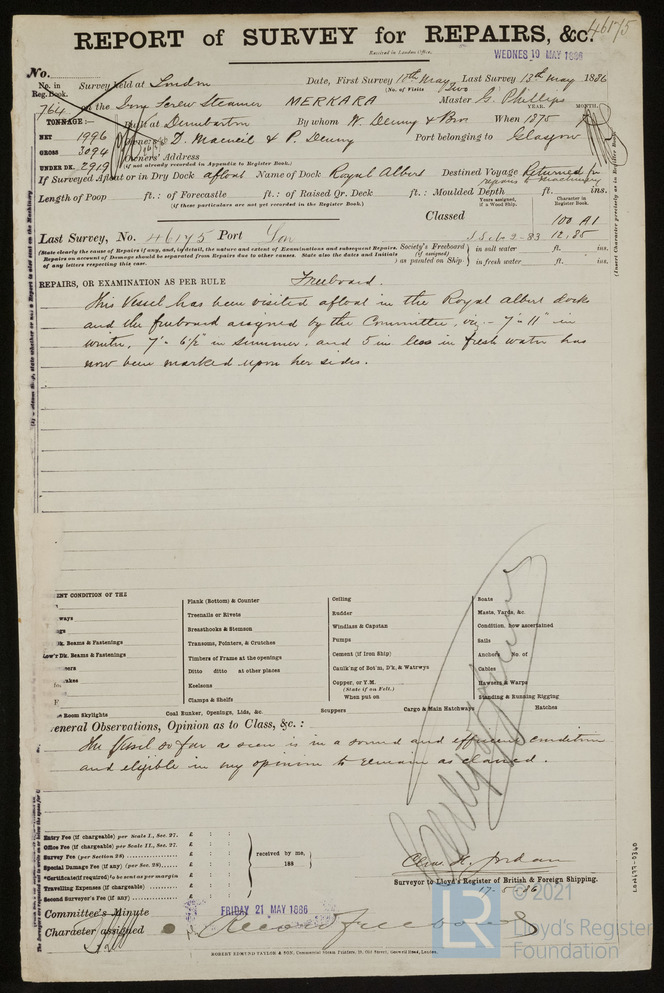 46175
REPORT of SURVEY for REPAIRS, &c.
Received in London Office,
WEDNES 19 MAY 1886
No.
No. in Reg. Book.
Survey held at London Date, First Survey 10th May Last Survey 13th May 1886
(No. of Visits Two
764 on the Iron Screw Steamer MERKARA Master G. Phillips
TONNAGE:— Built at Dumbarton By whom W. Denny & Bros When 1875
YEAR. MONTH.
NET 1996
GROSS 3094
UNDER DK. 2919
Owners D. Macneil & P. Denny Port belonging to Glasgow
Owners' Address
(if not already recorded in Appendix to Register Book.)
If Surveyed Afloat or in Dry Dock afloat Name of Dock Royal Albert Destined Voyage Returned for
repairs to machinery
Length of Poop ft.: of Forecastle ft.: of Raised Qr. Deck ft.: Moulded Depth ft. ins.
(if these particulars are not yet recorded in the Register Book.)
Years assigned, if a Wood Ship.
Character in Register Book.
Classed 100 A1
Last Survey, No. 46175 Port Lon 12.85
(State clearly the cause of Repairs if any, and, in detail, the nature and extent of Examinations and subsequent Repairs.
Repairs on account of Damage should be separated from Repairs due to other causes. State also the dates and Initials
of any letters respecting this case.
Society's Freeboard (if assigned) as painted on Ship
in salt water ft. ins.
in fresh water ft. ins.
(Insert Character precisely as in Register Book.)
REPAIRS, OR EXAMINATION AS PER RULE Freeboard.
This Vessel has been visited afloat in the Royal Albert docks
and the freeboard assigned by the Committee, viz - 7'- 11" in
winter, 7'- 6½" in summer, and 5 in. less in fresh water has
now been marked upon her sides.
ENT CONDITION OF THE
Dk. Beams & Fastenings
Low'r Dk. Beams & Fastenings
Room Skylights
Plank (Bottom) & Counter
Treenails or Rivets
Breasthooks & Stemson
Transoms, Pointers, & Crutches
Timbers of Frame at the openings
Ditto ditto at other places
Keelsons
Clamps & Shelfs
Coal Bunker, Openings, Lids, &c.
Ceiling
Rudder
Windlass & Capstan
Pumps
Cement (if Iron Ship)
Caulk'ng of Bot'm, D'k, & Watrwys
Copper, or Y.M.
(State if on Felt.)
When put on
Scuppers
Cargo & Main Hatchways
Boats
Masts, Yards, &c.
Condition, how ascertained
Sails
Anchors No. of
Cables
Hawsers & Warps
Standing & Running Rigging
Hatches
eneral Observations, Opinion as to Class, &c. :
The Vessel so far as seen is in a sound and efficient condition
and eligible in my opinion to remain as classed.
Entry Fee (if chargeable) per Scale I., Sec. 27. £ : :
Office Fee (if chargeable) per Scale II., Sec. 27. £ : :
Survey Fee (per Section 28) £ : :
Special Damage Fee (if any) (per Sec. 28) £ : :
*Certificate (if required) to be sent as per margin
Travelling Expenses (if chargeable) £ : :
Second Surveyor's Fee (if any) £ : :
received by me,
188
Chas. H. Jordan
Surveyor to Lloyd's Register of British & Foreign Shipping.
17-5-86
Committee's Minute FRIDAY 21 MAY 1886
Character assigned Record freeboard
ROBERT EDMUND TAYLOR & SON, Commercial Steam Printers, 19, Old Street, Goswell Road, London.
LON499-0340
LR
© 2021
Lloyd's Register
Foundation